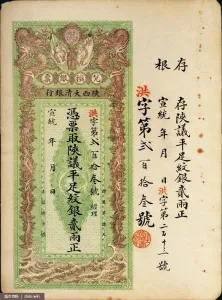 兌換銀票
陝西大清銀行
洪字第貳百拾叁號 經理
憑票取陝議平足紋銀貳兩正
宣統 年 月 日
存根
存陝議平足紋銀貳兩正
宣統 年 月 日洪字第二百十三號
洪字第貳百拾叁號